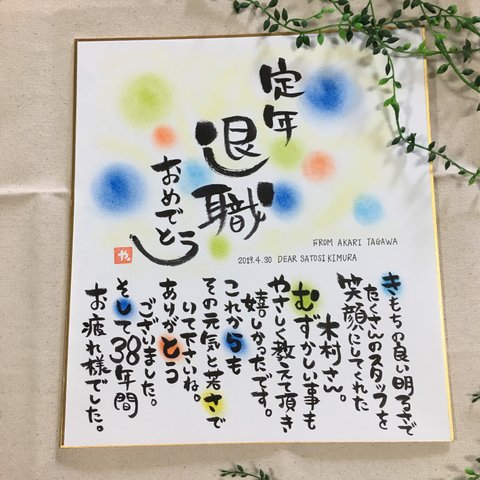 定年
退職
おめでとう
FROM AKARI TAGAWA
2019.4.30 DEAR SATOSI KIMURA
きもちの良い明るさで
たくさんのスタッフを
笑顔にしてくれた
木村さん。
むずかしい事も
やさしく教えて頂き
嬉しかったです。
これからも
その元気と若さで
いて下さいね。
ありがとう
ございました。
そして38年間
お疲れ様でした。